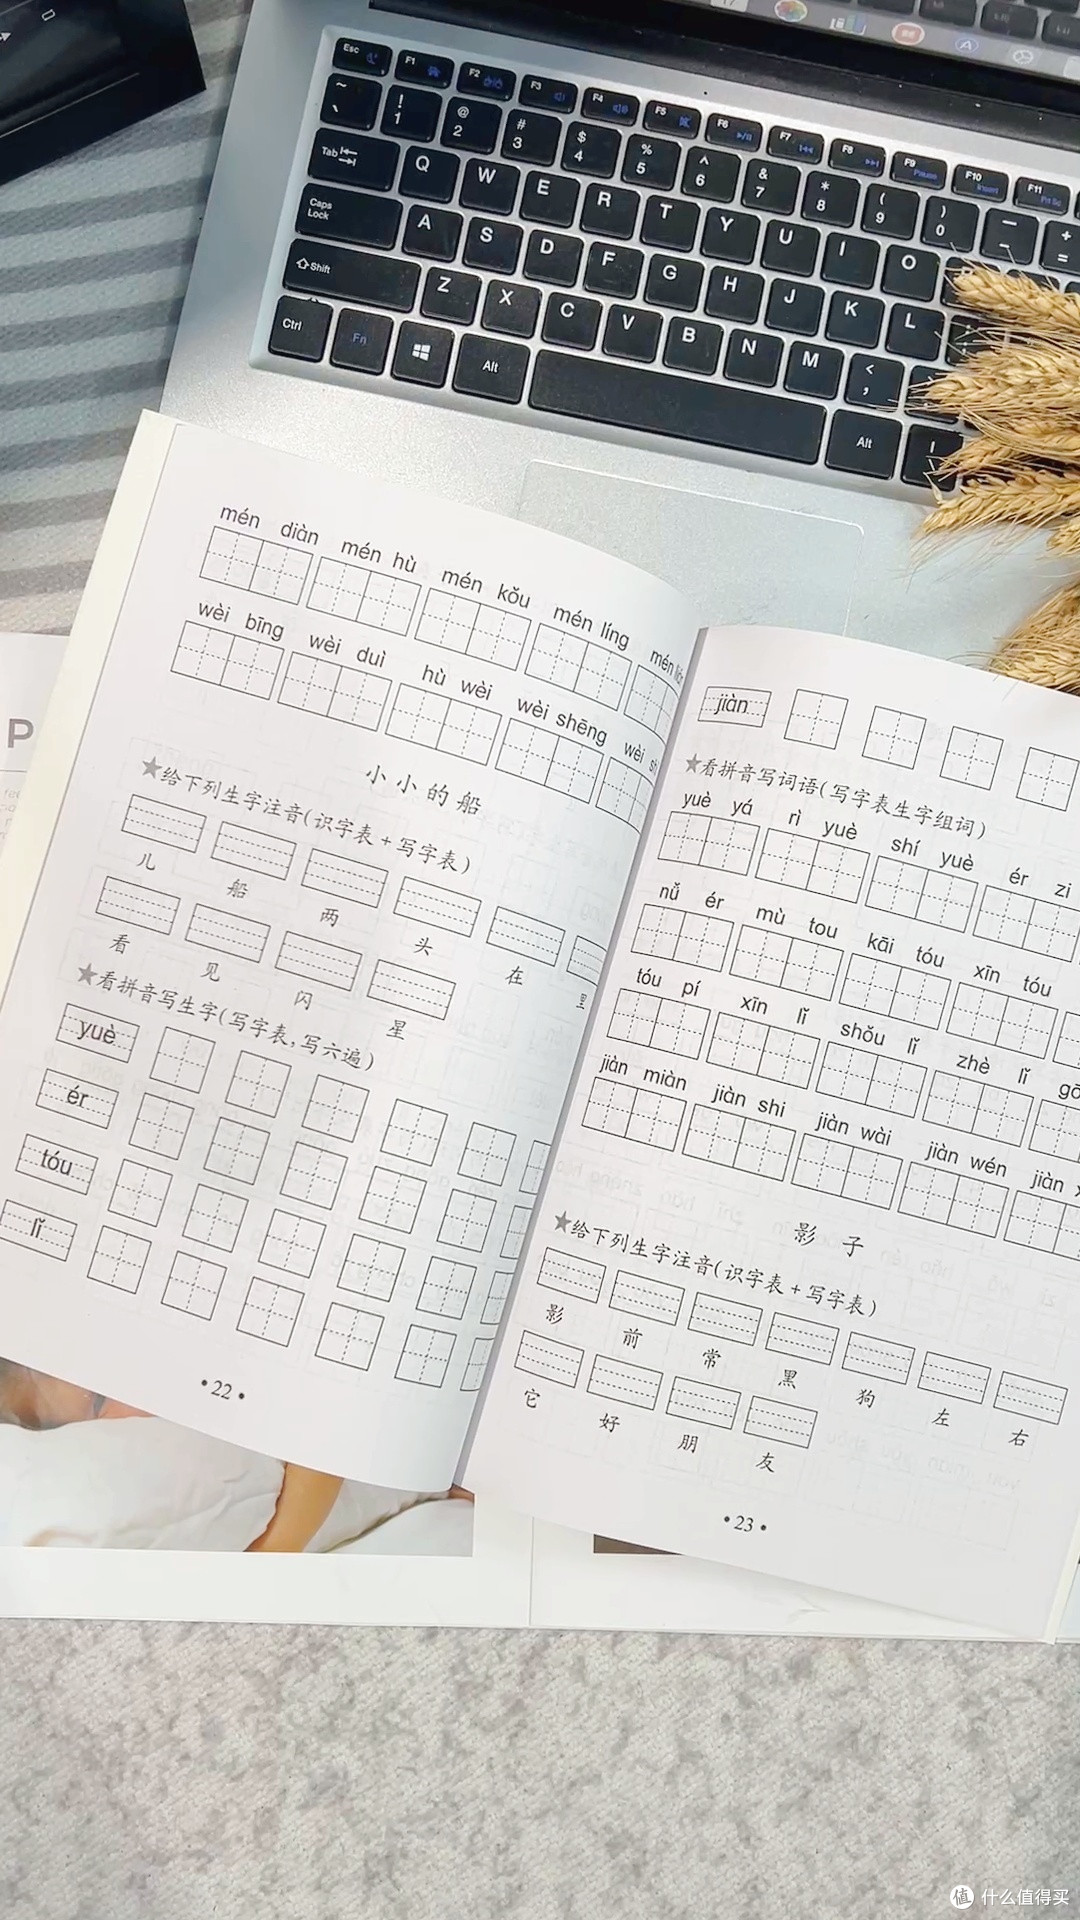 Esc F1 F2 F3 F4 F5 F6 F7 F8 F9 F10 F11
~ ! 1 @ 2 # 3 $ 4 % 5 ^ 6 & 7 * 8 ( 9 ) 0 — - + =
Tab Q W E R T Y U I O
Caps Lock A S D F G H J K L
Shift Z X C V B N M < ,
Ctrl Fn Alt Alt
P
mén diàn mén hù mén kǒu mén líng
wèi bīng wèi duì hù wèi wèi shēng
小小的船
★给下列生字注音(识字表+写字表)
儿 船 两 头 在 里
看 见 闪 星
★看拼音写生字(写字表,写六遍)
yuè
ér
tóu
lǐ
•22•
jiàn
★看拼音写词语(写字表生字组词)
yuè yá rì yuè shí yuè ér zi
nǚ ér mù tou kāi tóu xīn tóu
tóu pí xīn lǐ shǒu lǐ zhè lǐ
jiàn miàn jiàn shi jiàn wài jiàn wén jiàn
影 子
★给下列生字注音(识字表+写字表)
影 前 常 黑 狗 左 右
它 好 朋 友
•23•
值 什么值得买